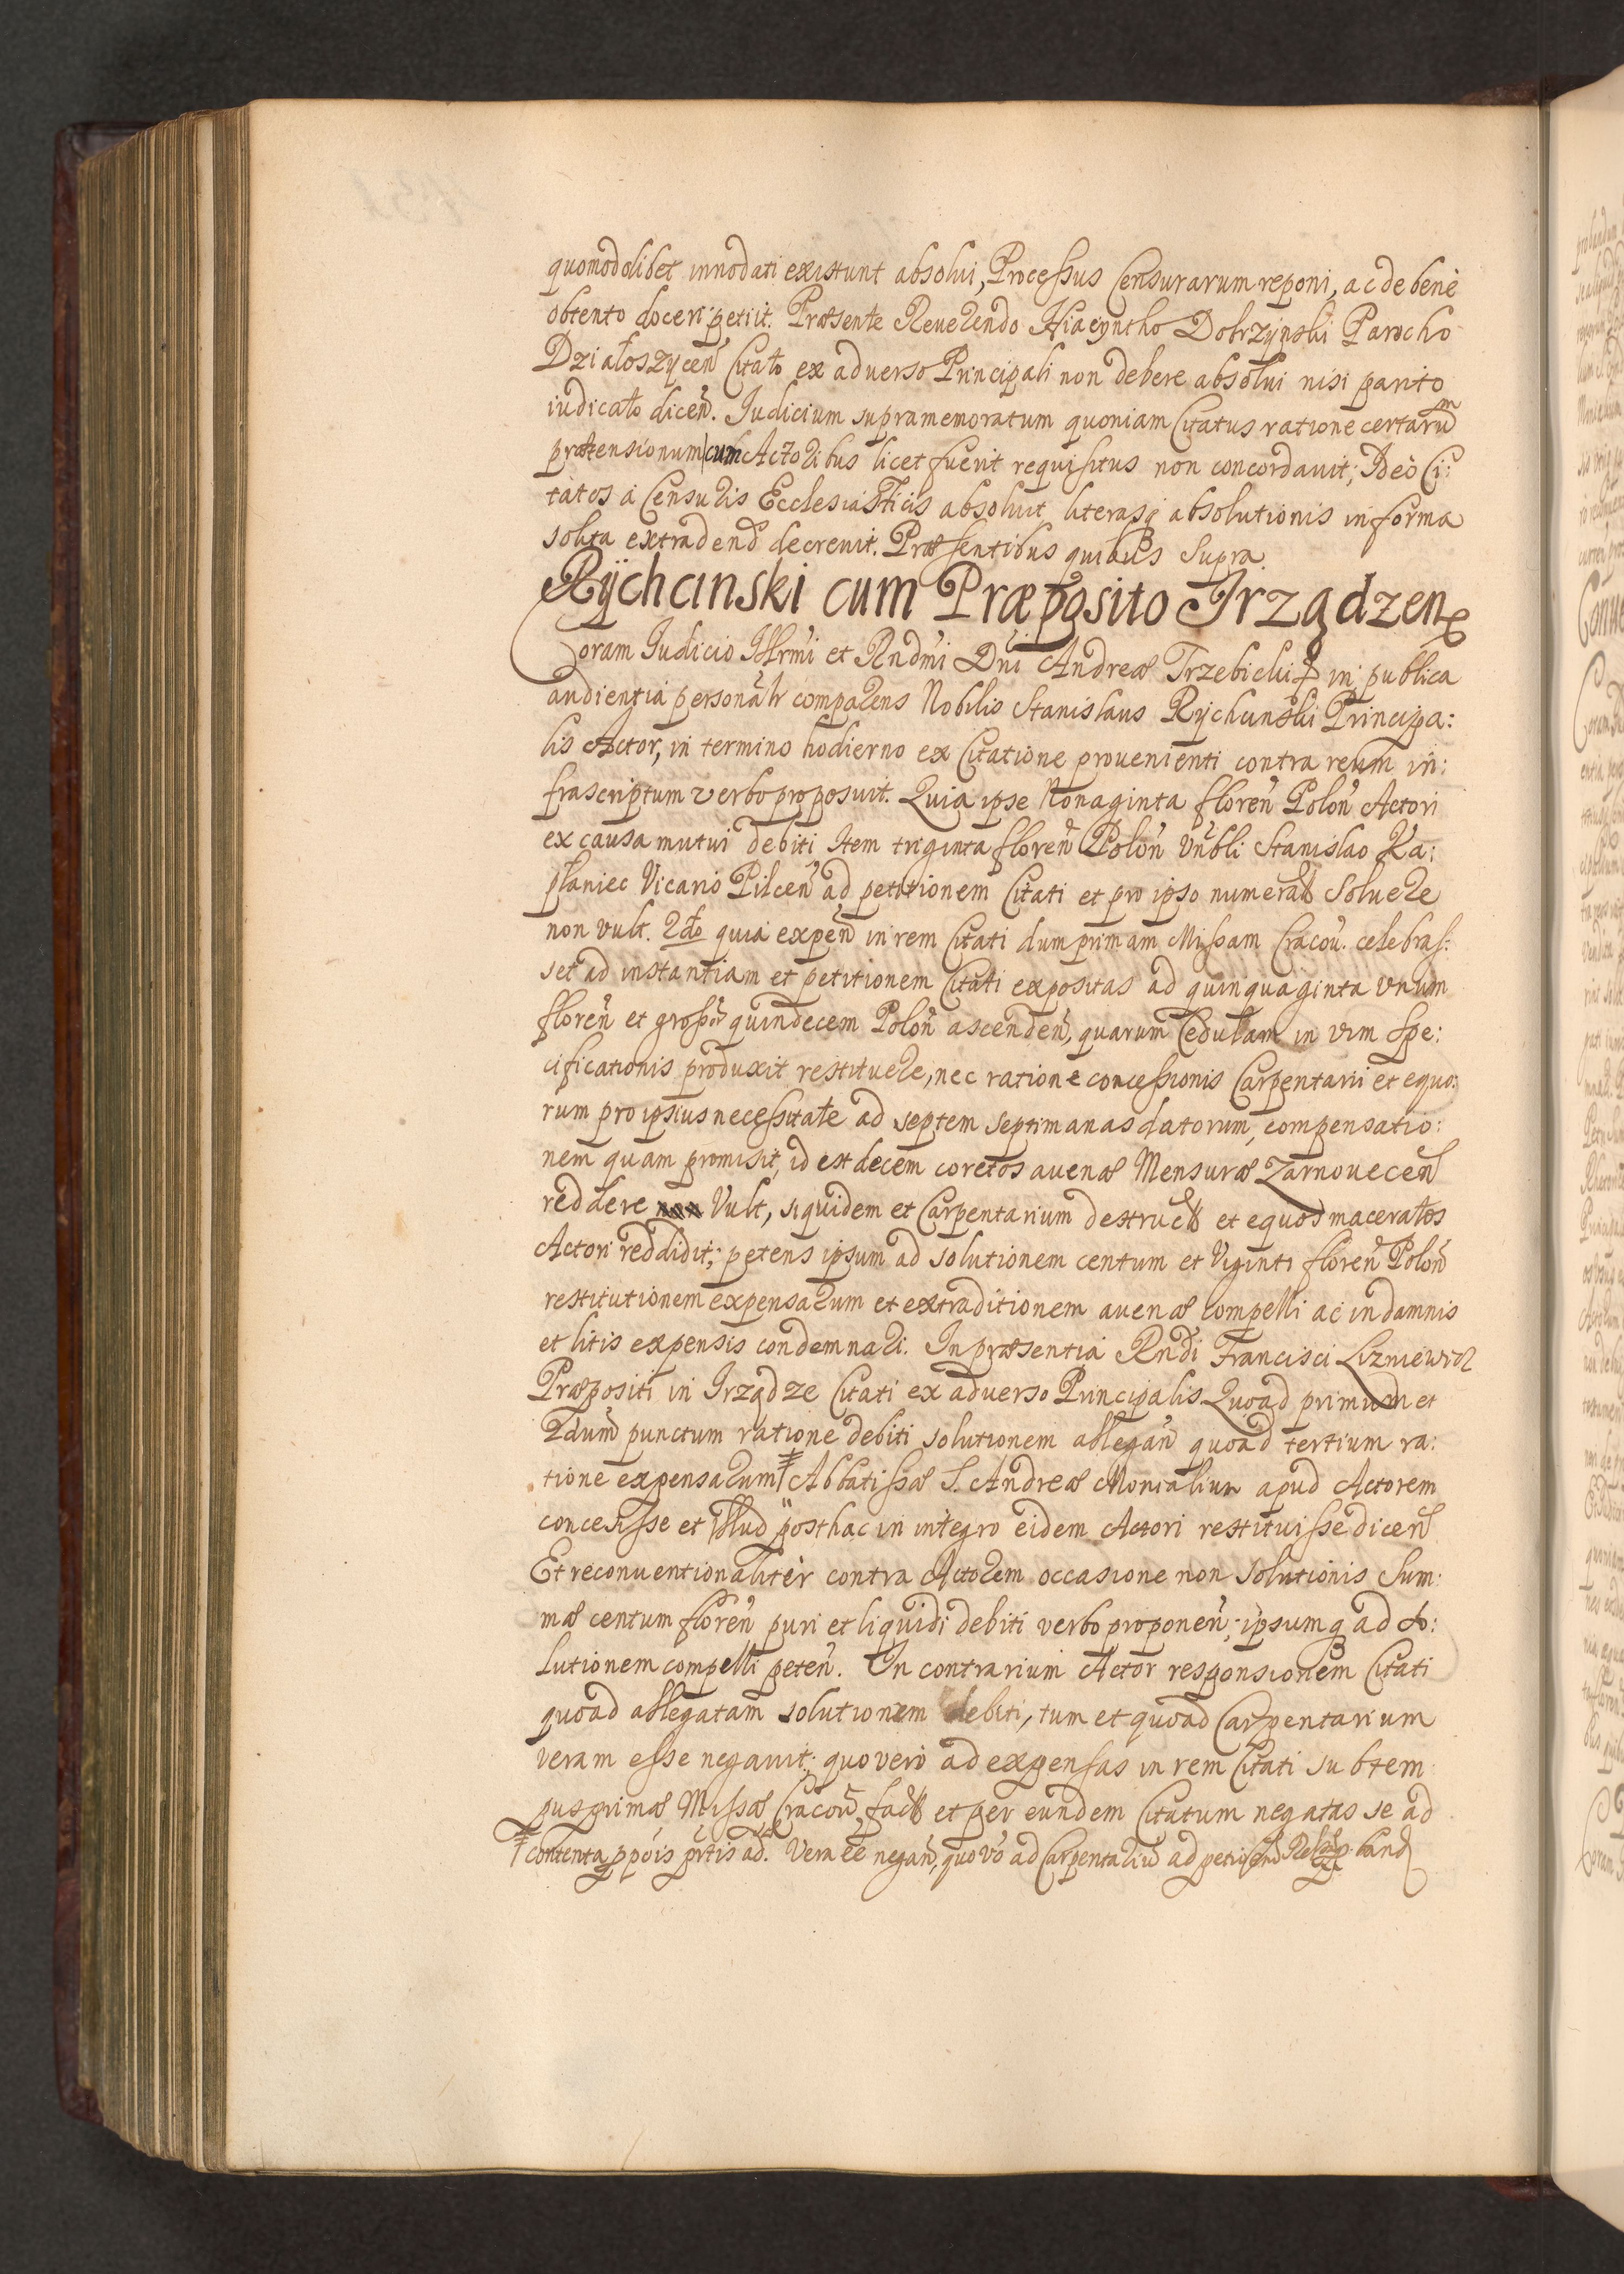 quomodolibet innodati existunt absolui, Processus Censurarum reponi, ac de benè
obtento doceri petiit. Præsente Reuerendo Hiacyntho Dobrzynski Parocho
Działoszycen̄ Citato ex aduerso Principali non debere absolui nisi parito
iudicato dicen̄. Iudicium supramemoratum quoniam Citatus ratione certarum
prætensionum cum Actoribus licet fuerit requisitus non concordauit; Ideò Ci:
tatos à Censuris Ecclesiasticis absoluit literasq absolutionis in forma
solita extradend decreuit. Præsentibus quibus Supra.
Rÿchanski cum Præposito Irządzen
Coram Iudicio Illrmi et Rndmi Dni Andreæ Trzebicki in publica
audientia personalr comparens Nobilis Stanislaus Rychunski Principa:
lis Actor, in termino hodierno ex Citatione prouenienti contra reum in:
frascriptum verbo proposuit. Quia ipse Nonaginta floren̄ Polon̄ Actori
ex causa mutui debiti Item triginta floren̄ Polon̄ Vn̄bli Stanislao Ka:
płaniec Vicario Pilcen̄ ad petitionem Citati et pro ipso numerat Soluere
non vult. 2do quia expen̄ in rem Citati dum primam Missam Cracou. celebras:
set ad instantiam et petitionem Citati expositas ad quinquaginta vnum
floren̄ et grossos quindecem Polon̄ ascenden̄, quarum Cedulam in vim Spe:
cificationis produxit restituere, nec ratione concessionis Carpentarii et equo:
rum pro ipsius necessitate ad septem septimanas datorum, compensatio:
nem quam promisit, id est decem coretos auenæ Mensuræ Zarnouecen̄
reddere Vult, siquidem et Carpentarium destruct et equos maceratos
Actori reddidit; petens ipsum ad solutionem centum et Viginti floren̄ Polon̄
restitutionem expensarum et extraditionem auenæ compelli ac in damnis
et litis expensis condemnari. In præsentia Rndi Francisci Lizniewicz
Præpositi in Irządze Citati ex aduerso Principalis. Quoad primum et
2dum punctum ratione debiti solutionem allegan̄ quoad tertium ra:
tione expensarum Abbatissæ S. Andreæ Monialium apud Actorem
concessisse et illud posthac in integro eidem Actori restituisse dicen̄
Et reconuentionaliter contra Actorem occasione non Solutionis Sum:
mæ centum floren̄ puri et liquidi debiti verbo proponen̄; ipsumq ad so:
lutionem compelli peten̄. In contrarium Actor responsionem Citati
quoad allegatam solutionem debiti, tum et quoad Carpentarium
veram esse negauit; quo verò ad expensas in rem Citati sub tem
pus primæ Missæ Cracou fact et per eundem Citatum negatas se ad
contenta ppōis prtis ad. Vera eē negan̄, quo vō ad Carpentariū ad